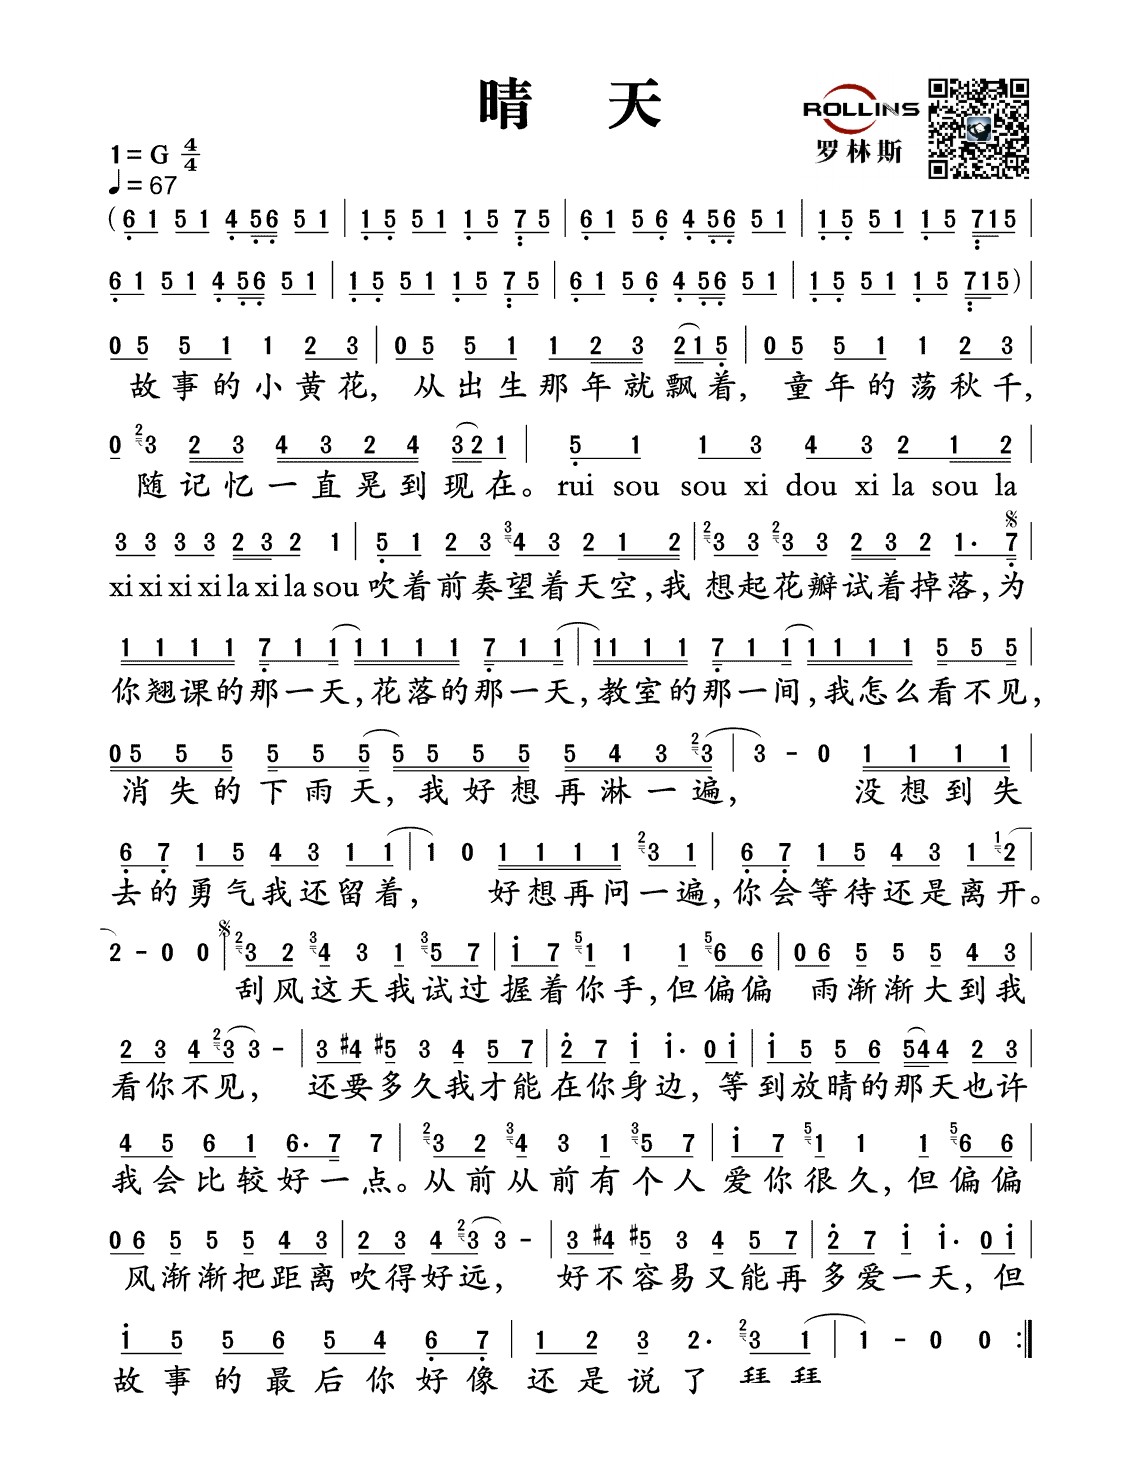 晴 天
ROLLINS
罗林斯
1=G 4/4
♩=67
(6 1 5 1 4 5 6 5 1 | 1 5 5 1 1 5 7 5 | 6 1 5 6 4 5 6 5 1 | 1 5 5 1 1 5 7 1 5 |
6 1 5 1 4 5 6 5 1 | 1 5 5 1 1 5 7 5 | 6 1 5 6 4 5 6 5 1 | 1 5 5 1 1 5 7 1 5) |
0 5 5 1 1 2 3 | 0 5 5 1 1 2 3 2 1 5 | 0 5 5 1 1 2 3 |
故事的小黄花, 从出生那年就飘着, 童年的荡秋千,
0 2 3 2 3 4 3 2 4 3 2 1 | 5 1 1 3 4 3 2 1 2 |
随记忆一直晃到现在。rui sou sou xi dou xi la sou la
3 3 3 3 2 3 2 1 | 5 1 2 3 3 4 3 2 1 2 | 2 3 3 2 3 3 2 3 2 1· 7 |
xi xi xi xi la xi la sou 吹着前奏望着天空,我 想起花瓣试着掉落,为
1 1 1 1 7 1 1 1 1 1 1 7 1 1 | 1 1 1 1 7 1 1 1 1 1 1 5 5 5 |
你翘课的那一天,花落的那一天,教室的那一间,我怎么看不见,
0 5 5 5 5 5 5 5 5 5 5 5 4 3 2 3 | 3 - 0 1 1 1 1 |
消失的下雨天,我好想再淋一遍, 没想到失
6 7 1 5 4 3 1 1 | 1 0 1 1 1 1 2 3 1 | 6 7 1 5 4 3 1 1 2 |
去的勇气我还留着, 好想再问一遍,你会等待还是离开。
2 - 0 0 | 2 3 2 3 4 3 1 3 5 7 | 1 7 5 1 1 1 5 6 6 | 0 6 5 5 5 4 3 |
刮风这天我试过握着你手,但偏偏 雨渐渐大到我
2 3 4 2 3 3 - | 3 #4 #5 3 4 5 7 | 2 7 1 1· 0 1 | 1 5 5 6 5 4 4 2 3 |
看你不见, 还要多久我才能在你身边,等到放晴的那天也许
4 5 6 1 6· 7 7 | 2 3 2 3 4 3 1 3 5 7 | 1 7 5 1 1 1 5 6 6 |
我会比较好一点。从前从前有个人爱你很久,但偏偏
0 6 5 5 5 4 3 | 2 3 4 2 3 3 - | 3 #4 #5 3 4 5 7 | 2 7 1 1· 0 1 |
风渐渐把距离吹得好远, 好不容易又能再多爱一天,但
1 5 5 6 5 4 6 7 | 1 2 3 2· 2 3 1 | 1 - 0 0 :‖
故事的最后你好像还是说了 拜拜